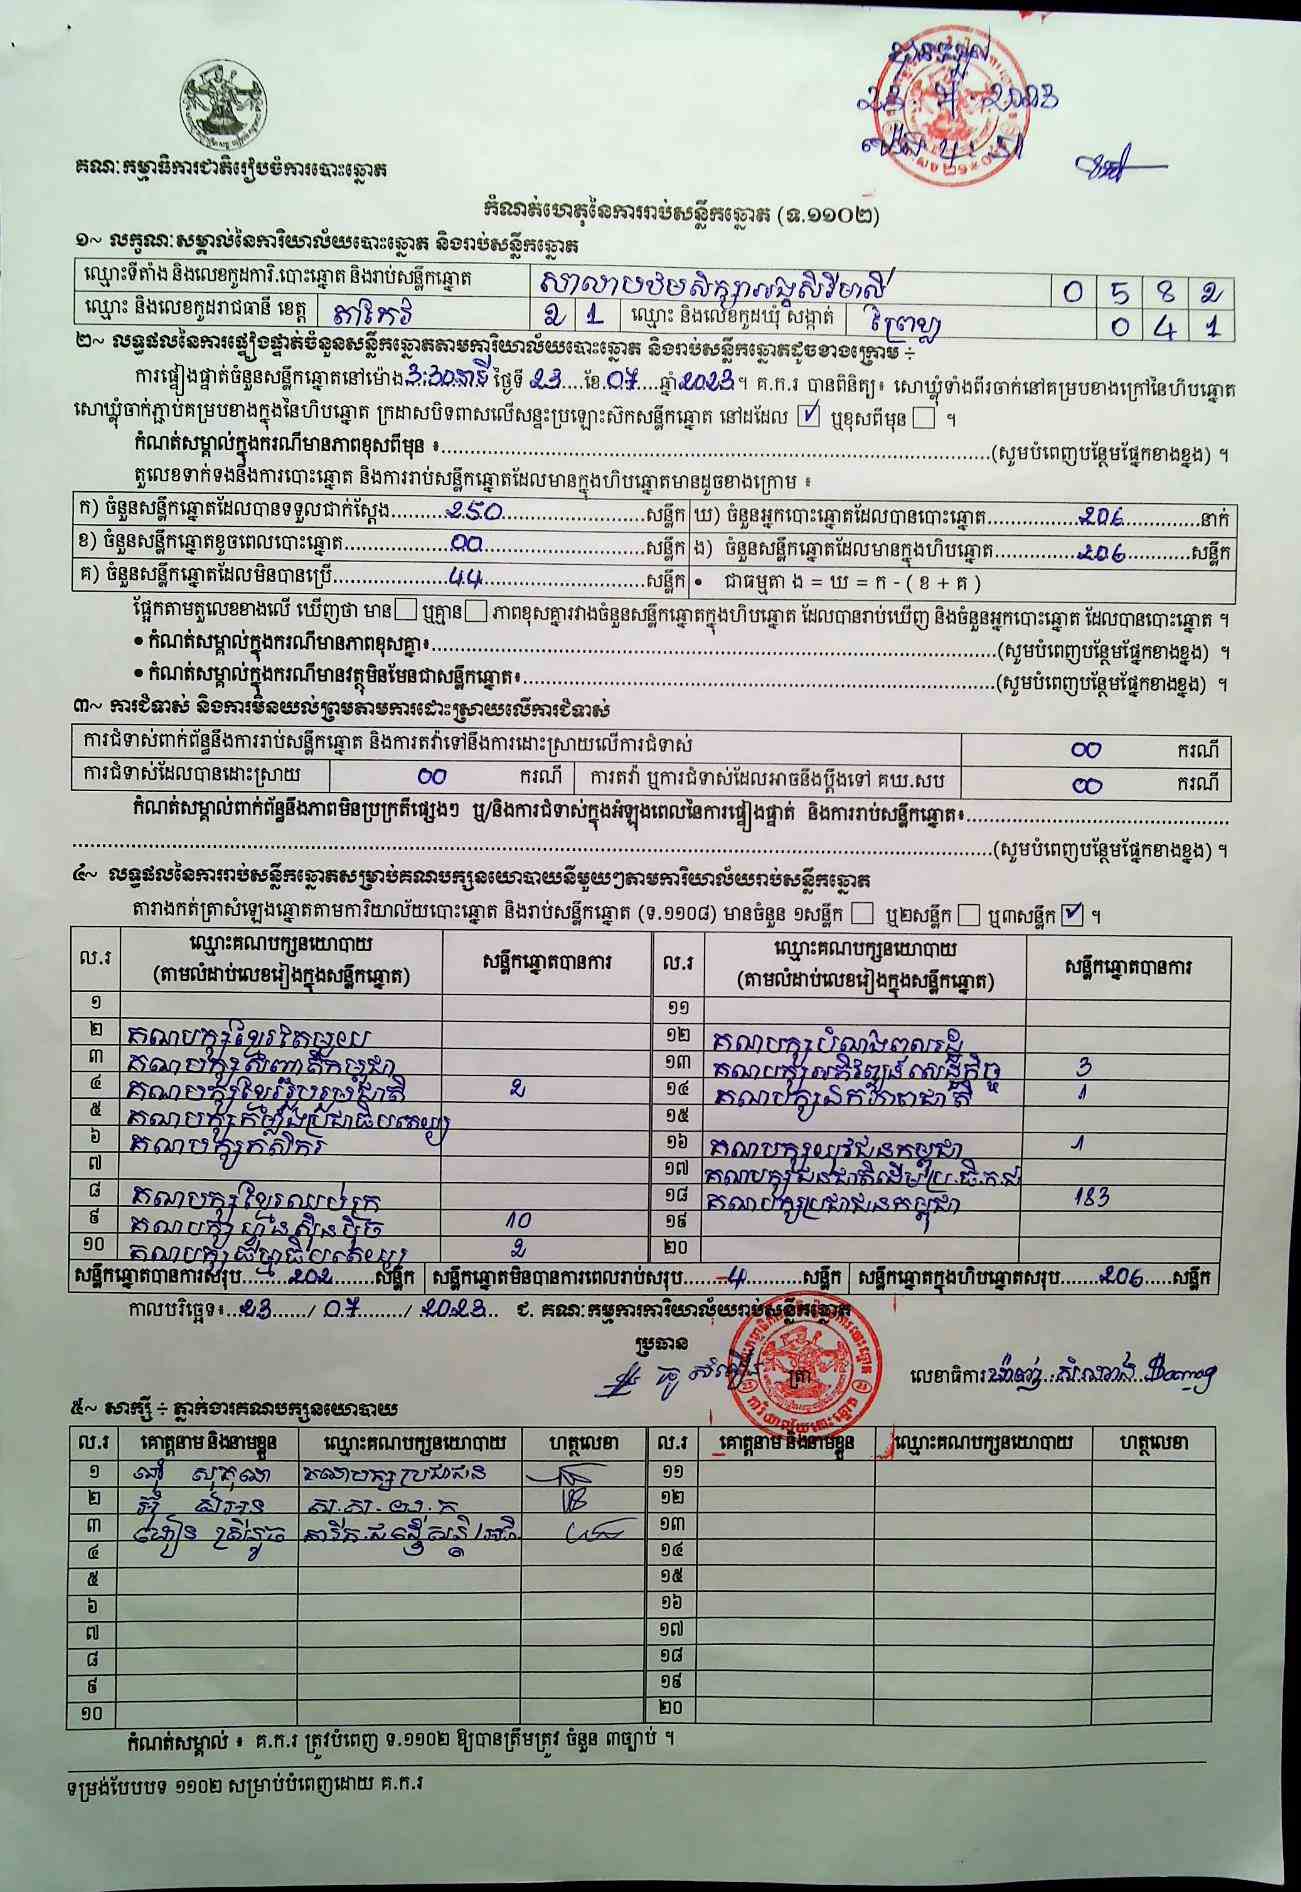 បានទទួល
23 . 7 . 2023
គណៈកម្មាធិការជាតិរៀបចំការបោះឆ្នោត
កំណត់ហេតុនៃការរាប់សន្លឹកឆ្នោត (ទ.១១០២)
១~ លក្ខណៈសម្គាល់នៃការិយាល័យបោះឆ្នោត និងរាប់សន្លឹកឆ្នោត
ឈ្មោះទីតាំង និងលេខកូដការិ.បោះឆ្នោត និងរាប់សន្លឹកឆ្នោត សាលាបឋមសិក្សាអង្គសិរីមាលី 0 5 8 2
ឈ្មោះ និងលេខកូដរាជធានី ខេត្ត តាកែវ 2 1 ឈ្មោះ និងលេខកូដឃុំ សង្កាត់ ព្រៃខ្លា 0 4 1
២~ លទ្ធផលនៃការផ្ទៀងផ្ទាត់ចំនួនសន្លឹកឆ្នោតតាមការិយាល័យបោះឆ្នោត និងរាប់សន្លឹកឆ្នោតដូចខាងក្រោម ÷
ការផ្ទៀងផ្ទាត់ចំនួនសន្លឹកឆ្នោតនៅម៉ោង 3:30នាទី ថ្ងៃទី 23 ....ខែ. 07 ....ឆ្នាំ 2023 ។ គ.ក.រ បានពិនិត្យ៖ សោឃ្លុំទាំងពីរចាក់នៅគម្របខាងក្រៅនៃហិបឆ្នោត
សោឃ្លុំចាក់ភ្ជាប់គម្របខាងក្នុងនៃហិបឆ្នោត ក្រដាសបិទពាសលើសន្ទះប្រឡោះស៊កសន្លឹកឆ្នោត នៅដដែល ☑ ឬខុសពីមុន ☐ ។
កំណត់សម្គាល់ក្នុងករណីមានភាពខុសពីមុន ៖..........(សូមបំពេញបន្ថែមផ្នែកខាងខ្នង) ។
តួលេខទាក់ទងនឹងការបោះឆ្នោត និងការរាប់សន្លឹកឆ្នោតដែលមានក្នុងហិបឆ្នោតមានដូចខាងក្រោម ៖
ក) ចំនួនសន្លឹកឆ្នោតដែលបានទទួលជាក់ស្តែង..........250..........សន្លឹក ឃ) ចំនួនអ្នកបោះឆ្នោតដែលបានបោះឆ្នោត..........206..........នាក់
ខ) ចំនួនសន្លឹកឆ្នោតខូចពេលបោះឆ្នោត..........00..........សន្លឹក ង) ចំនួនសន្លឹកឆ្នោតដែលមានក្នុងហិបឆ្នោត..........206..........សន្លឹក
គ) ចំនួនសន្លឹកឆ្នោតដែលមិនបានប្រើ..........44..........សន្លឹក • ជាធម្មតា ង = ឃ = ក - ( ខ + គ )
ផ្អែកតាមតួលេខខាងលើ ឃើញថា មាន ☐ ឬគ្មាន ☐ ភាពខុសគ្នារវាងចំនួនសន្លឹកឆ្នោតក្នុងហិបឆ្នោត ដែលបានរាប់ឃើញ និងចំនួនអ្នកបោះឆ្នោត ដែលបានបោះឆ្នោត ។
• កំណត់សម្គាល់ក្នុងករណីមានភាពខុសគ្នា៖..........(សូមបំពេញបន្ថែមផ្នែកខាងខ្នង) ។
• កំណត់សម្គាល់ក្នុងករណីមានវត្ថុមិនមែនជាសន្លឹកឆ្នោត៖..........(សូមបំពេញបន្ថែមផ្នែកខាងខ្នង) ។
៣~ ការជំទាស់ និងការមិនយល់ព្រមតាមការដោះស្រាយលើការជំទាស់
ការជំទាស់ពាក់ព័ន្ធនឹងការរាប់សន្លឹកឆ្នោត និងការតវ៉ាទៅនឹងការដោះស្រាយលើការជំទាស់ 00 ករណី
ការជំទាស់ដែលបានដោះស្រាយ 00 ករណី ការតវ៉ា ឬការជំទាស់ដែលអាចនឹងប្តឹងទៅ គឃ.សប 00 ករណី
កំណត់សម្គាល់ពាក់ព័ន្ធនឹងភាពមិនប្រក្រតីផ្សេងៗ ឬ/និងការជំទាស់ក្នុងអំឡុងពេលនៃការផ្ទៀងផ្ទាត់ និងការរាប់សន្លឹកឆ្នោត៖..........
..........(សូមបំពេញបន្ថែមផ្នែកខាងខ្នង) ។
៤~ លទ្ធផលនៃការរាប់សន្លឹកឆ្នោតសម្រាប់គណបក្សនយោបាយនីមួយៗតាមការិយាល័យរាប់សន្លឹកឆ្នោត
តារាងកត់ត្រាសំឡេងឆ្នោតតាមការិយាល័យបោះឆ្នោត និងរាប់សន្លឹកឆ្នោត (ទ.១១០៨) មានចំនួន ១សន្លឹក ☐ ឬ២សន្លឹក ☐ ឬ៣សន្លឹក ☑ ។
ល.រ ឈ្មោះគណបក្សនយោបាយ (តាមលំដាប់លេខរៀងក្នុងសន្លឹកឆ្នោត) សន្លឹកឆ្នោតបានការ ល.រ ឈ្មោះគណបក្សនយោបាយ (តាមលំដាប់លេខរៀងក្នុងសន្លឹកឆ្នោត) សន្លឹកឆ្នោតបានការ
១ ១១
២ គណបក្សខ្មែរតែមួយ ១២ គណបក្សបំណងពលរដ្ឋ
៣ គណបក្សសញ្ជាតិកម្ពុជា ១៣ គណបក្សអភិវឌ្ឍន៍សេដ្ឋកិច្ច 3
៤ គណបក្សខ្មែររួបរួមជាតិ 2 ១៤ គណបក្សឯកភាពជាតិ 1
៥ គណបក្សកម្លាំងប្រជាធិបតេយ្យ ១៥
៦ គណបក្សកសិករ ១៦ គណបក្សយុវជនកម្ពុជា 1
៧ ១៧ គណបក្សជនជាតិដើមប្រ.ធិ.ក.ជ
៨ គណបក្សខ្មែរឈប់ក្រ ១៨ គណបក្សប្រជាជនកម្ពុជា 183
៩ គណបក្សហ្វ៊ុនស៊ិនប៉ិច 10 ១៩
១០ គណបក្សធម្មាធិបតេយ្យ 2 ២០
សន្លឹកឆ្នោតបានការសរុប........202........សន្លឹក សន្លឹកឆ្នោតមិនបានការពេលរាប់សរុប........4........សន្លឹក សន្លឹកឆ្នោតក្នុងហិបឆ្នោតសរុប.......206.....សន្លឹក
កាលបរិច្ឆេទ៖...23....../ 07 ......./ 2023 .. ជ. គណៈកម្មការការិយាល័យរាប់សន្លឹកឆ្នោត
ប្រធាន
ត្រា
លេខាធិការ
៥~ សាក្សី ÷ ភ្នាក់ងារគណបក្សនយោបាយ
ល.រ គោត្តនាម និងនាមខ្លួន ឈ្មោះគណបក្សនយោបាយ ហត្ថលេខា ល.រ គោត្តនាម និងនាមខ្លួន ឈ្មោះគណបក្សនយោបាយ ហត្ថលេខា
១ គណបក្សប្រជាជន ១១
២ ១២
៣ ១៣
៤ ១៤
៥ ១៥
៦ ១៦
៧ ១៧
៨ ១៨
៩ ១៩
១០ ២០
កំណត់សម្គាល់ ៖ គ.ក.រ ត្រូវបំពេញ ទ.១១០២ ឱ្យបានត្រឹមត្រូវ ចំនួន ៣ច្បាប់ ។
ទម្រង់បែបបទ ១១០២ សម្រាប់បំពេញដោយ គ.ក.រ